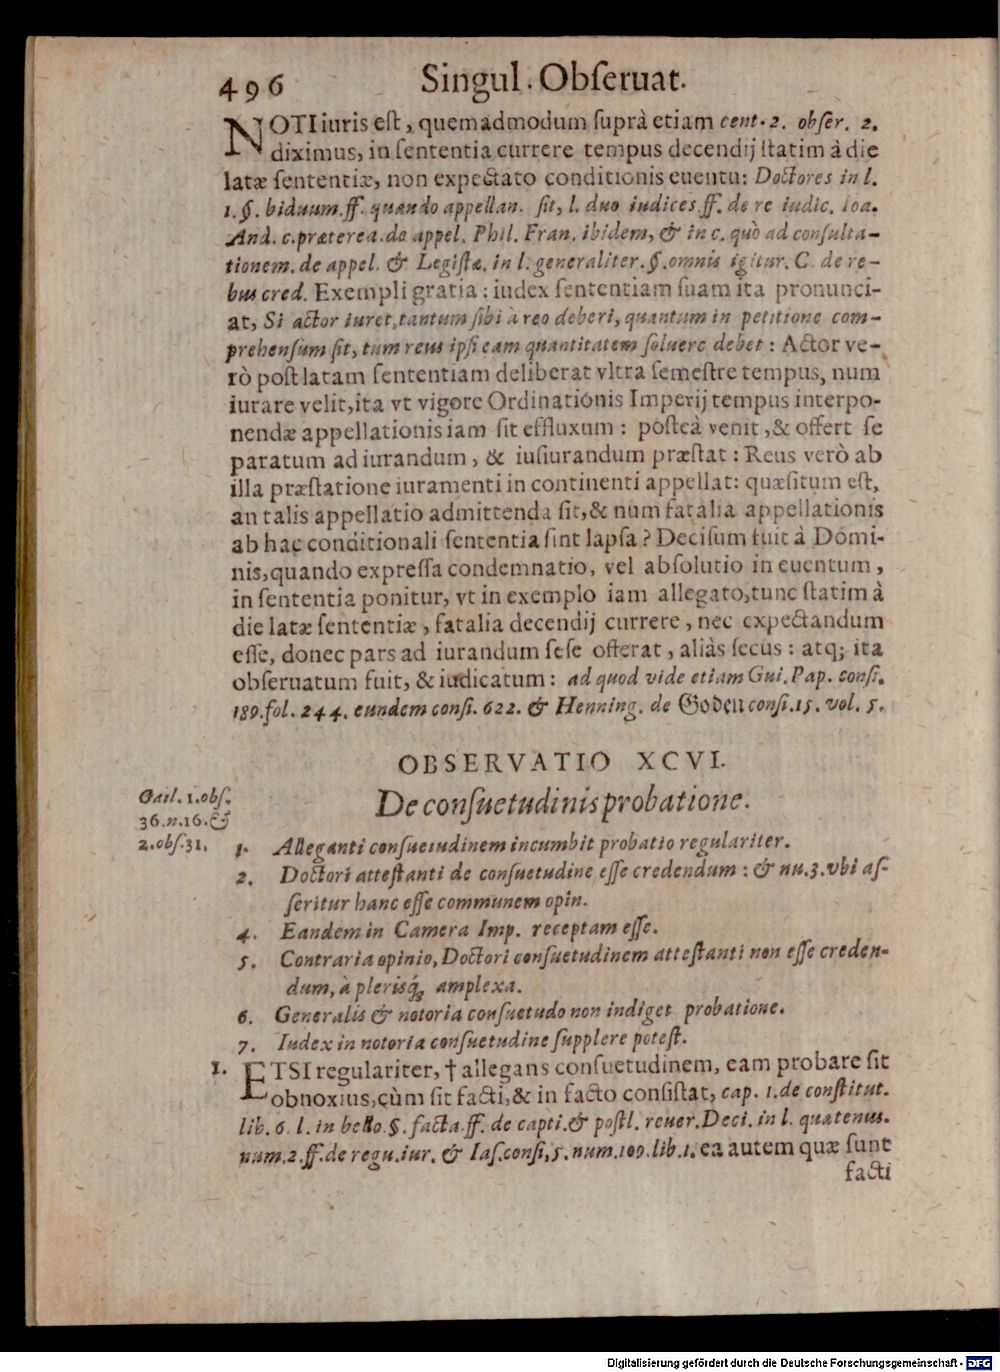 496
Singul. Obſeruat.
NOTI iuris eſt, quemadmodum ſuprà etiam cent. 2. obſer. 2.
diximus, in ſententia currere tempus decendij ſtatim à die
latæ ſententiæ, non expectato conditionis euentu: Doctores in l.
1. §. biduum. ff. quando appellan. ſit, l. duo iudices. ff. de re iudic. Ioa.
And. c. præterea. de appel. Phil. Fran. ibidem, & in c. quò ad conſulta-
tionem. de appel. & Legiſtæ. in l. generaliter. §. omnis igitur. C. de re-
bus cred. Exempli gratia: iudex ſententiam ſuam ita pronunci-
at, Si actor iuret, tantum ſibi à reo deberi, quantum in petitione com-
prehenſum ſit, tum reus ipſi eam quantitatem ſoluere debet: Actor ve-
rò poſt latam ſententiam deliberat vltra ſemeſtre tempus, num
iurare velit, ita vt vigore Ordinationis Imperij tempus interpo-
nendæ appellationis iam ſit effluxum: poſteà venit, & offert ſe
paratum ad iurandum, & iuſiurandum præſtat: Reus verò ab
illa præſtatione iuramenti in continenti appellat: quæſitum eſt,
an talis appellatio admittenda ſit, & num fatalia appellationis
ab hac conditionali ſententia ſint lapſa? Deciſum fuit à Domi-
nis, quando expreſſa condemnatio, vel abſolutio in euentum,
in ſententia ponitur, vt in exemplo iam allegato, tunc ſtatim à
die latæ ſententiæ, fatalia decendij currere, nec expectandum
eſſe, donec pars ad iurandum ſeſe offerat, aliàs ſecus: atq; ita
obſeruatum fuit, & iudicatum: ad quod vide etiam Gui. Pap. conſi.
189. fol. 244. eundem conſi. 622. & Henning. de Goden conſi. 15. vol. 5.
OBSERVATIO XCVI.
De conſuetudinis probatione.
Gail. 1. obſ.
36. n. 16. &
2. obſ. 31.
1. Alleganti conſuetudinem incumbit probatio regulariter.
2. Doctori atteſtanti de conſuetudine eſſe credendum: & nu. 3. vbi aſ-
ſeritur hanc eſſe communem opin.
4. Eandem in Camera Imp. receptam eſſe.
5. Contraria opinio, Doctori conſuetudinem atteſtanti non eſſe creden-
dum, à plerisq́; amplexa.
6. Generalis & notoria conſuetudo non indiget probatione.
7. Iudex in notoria conſuetudine ſupplere poteſt.
1. ETSI regulariter, † allegans conſuetudinem, eam probare ſit
obnoxius, cùm ſit facti, & in facto conſiſtat, cap. 1. de conſtitut.
lib. 6. l. in bello. §. facta. ff. de capti. & poſtl. reuer. Deci. in l. quatenus.
num. 2. ff. de regu. iur. & Iaſ. conſi. 5. num. 109. lib. 1. ea autem quæ ſunt
facti
Digitalisierung gefördert durch die Deutsche Forschungsgemeinschaft - DFG